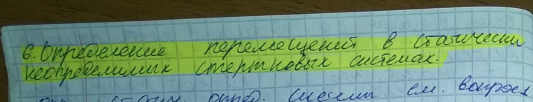 6. Определение перемещений в статически
неопределимых стержневых системах.
опред. системы см. вопрос